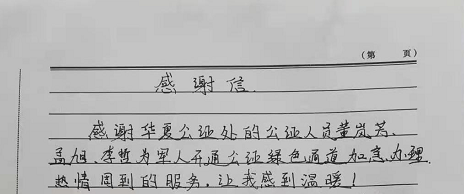 （第　　页）
感谢信
感谢华夏公证处的公证人员董岚芳、
孟旭、李哲为军人开通公证绿色通道加急办理
热情周到的服务，让我感到温暖！